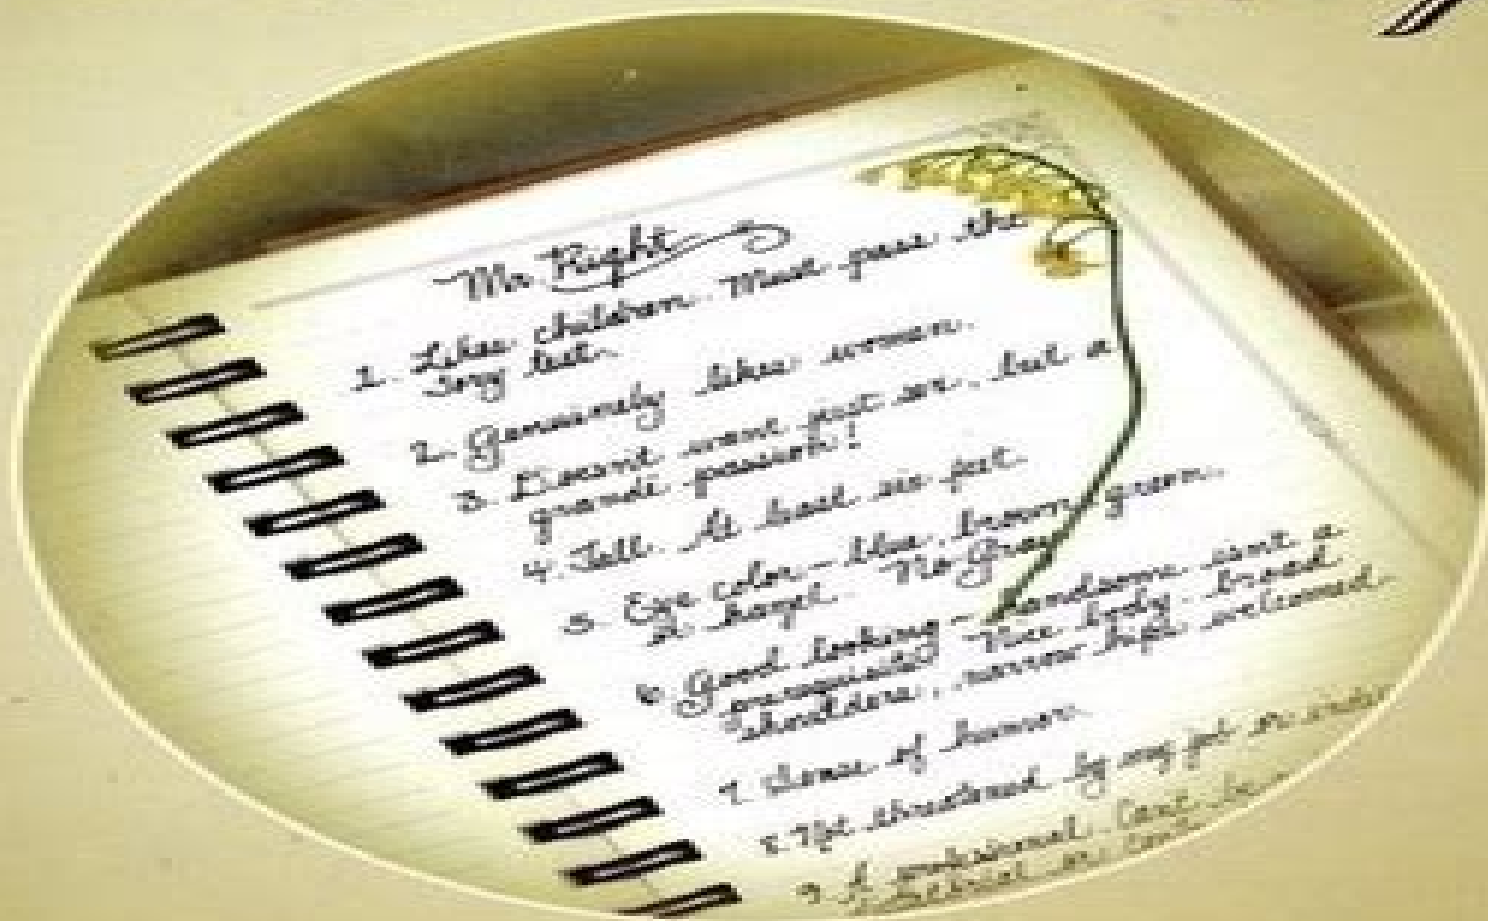 Mr. Right
1. Likes children. Must pass the
Tory test.
2. Genuinely likes women.
3. Doesn't want just sex, but a
grande passion!
4. Tall. At least six feet.
5. Eye color - blue, brown, green.
hazel. No Gray
6. Good looking - handsome isn't a
prerequisite. Nice body - broad
shoulders, narrow hips welcomed.
7. Sense of humor.
8. Not threatened by my job or
9. A professional. Can't be